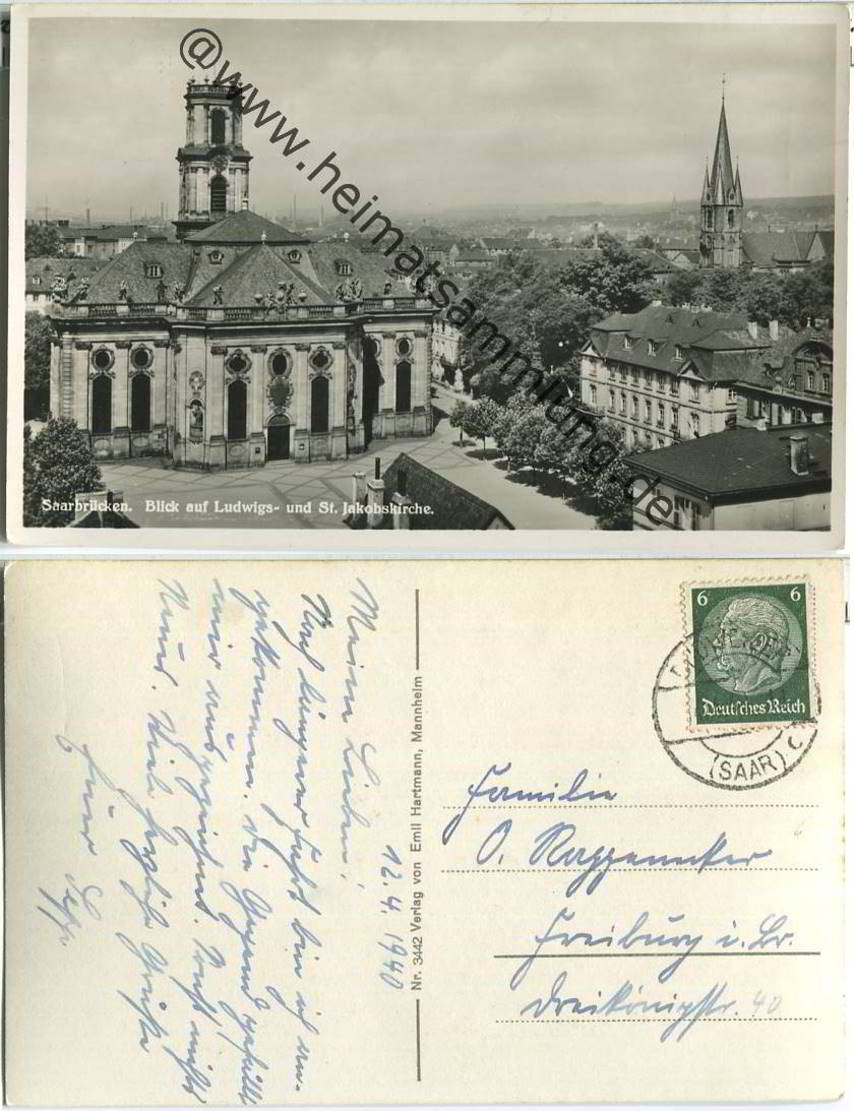 @www.heimatsammlung.de
Saarbrücken. Blick auf Ludwigs- und St. Jakobskirche.
12.4.1940
Meine Lieben!
Nach längerer Fahrt bin ich an-
gekommen. Die Gegend gefällt
mir ausgezeichnet. Sonst nichts
Neues. Viele herzliche Grüße
Euer
Nr. 3442 Verlag von Emil Hartmann, Mannheim
6 6
Deutsches Reich
(SAAR) c
Familie
O. Rappenecker
Freiburg i. Br.
Dreikönigstr. 40